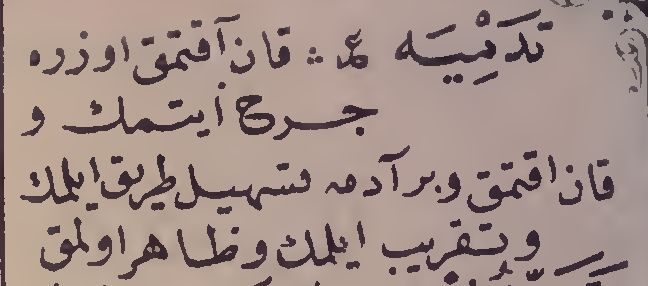 تَدْمِيَه عم ؞ قان آقتمق اوزره
جرح أيتمك و
قان اقتمق وبر آدمه تسهيل طريق ايلمك
و تقريب ايلمك و ظاهر اولمق